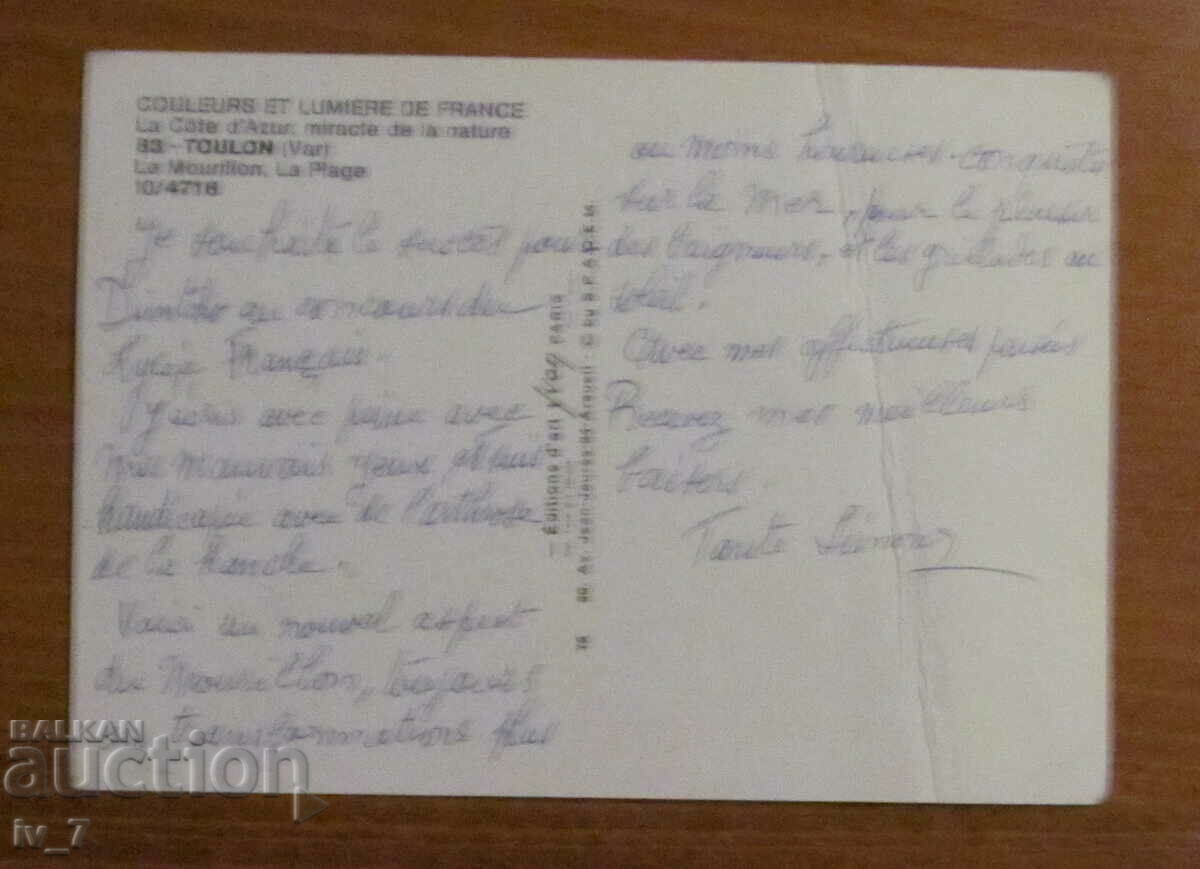 COULEURS ET LUMIERE DE FRANCE
La Côte d'Azur, miracle de la nature
83 - TOULON (Var)
Le Mourillon, La Plage
10/4716
Je souhaite le succès pour
Dimitko au concours du
Lycée Français.
J'écris avec peine avec
mes mauvais yeux et suis
handicapée avec de l'arthrose
de la hanche.
Voici un nouvel aspect
du Mourillon, toujours
transformations plus
ou moins heureuses conquête
sur la mer, pour le plaisir
des baigneurs, et les grillades au
soleil.
Avec mes affectueuses pensées
Recevez mes meilleurs
baisers.
Tante Simone
— Éditions d'art Yvon PARIS
99, Av. Jean-Jaurès 94 Arcueil
BALKAN
auction
iv_7